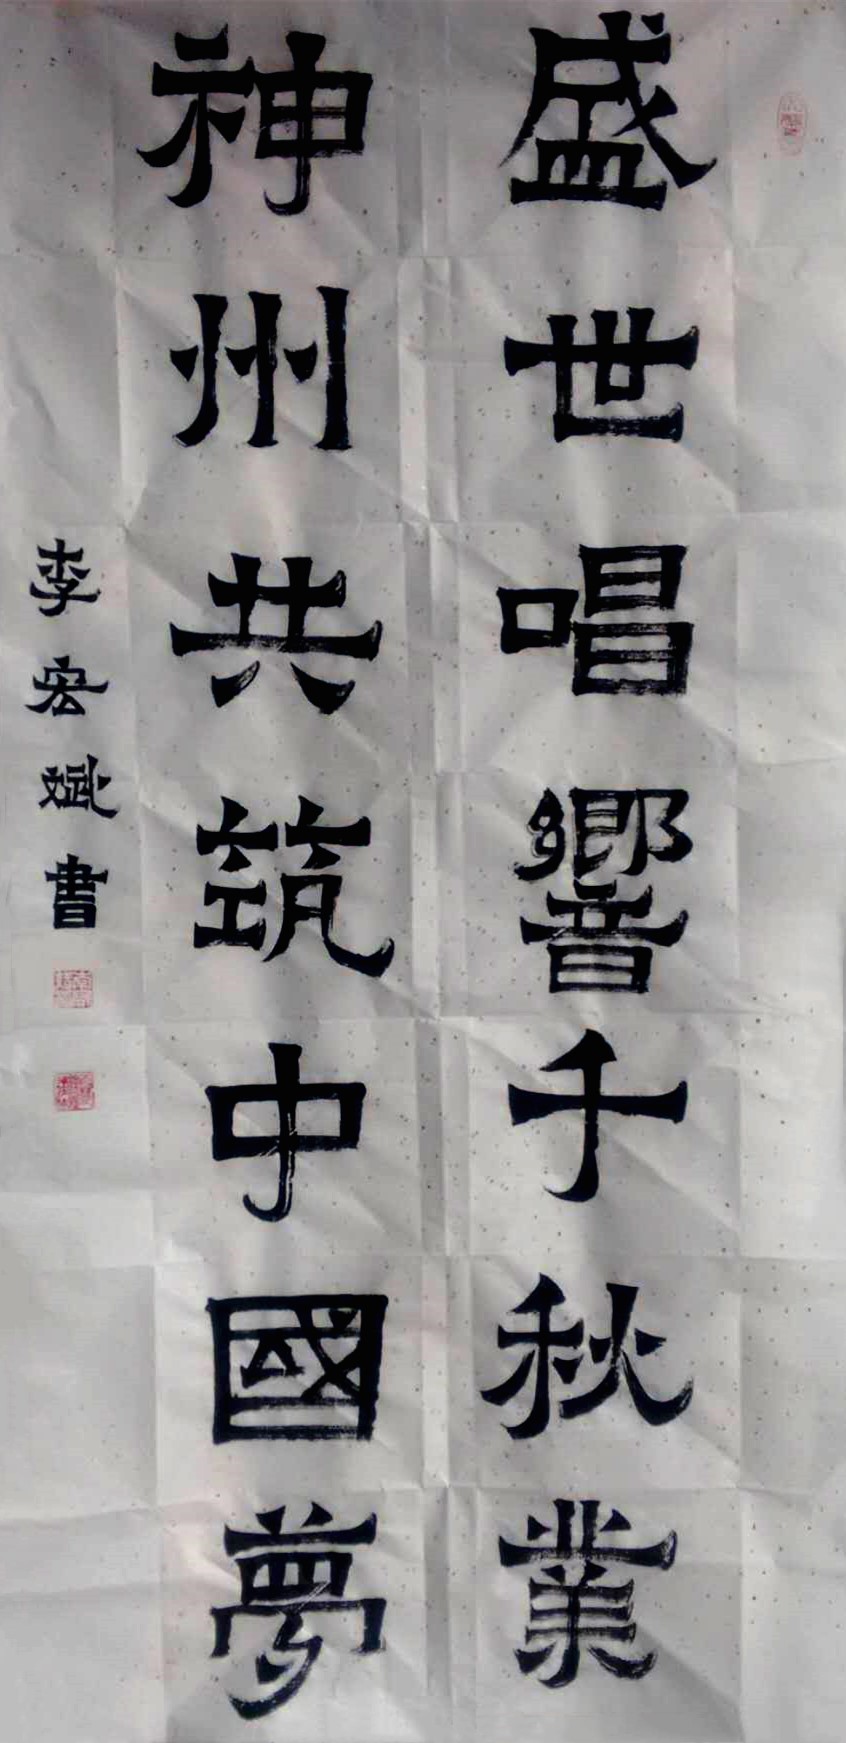 盛世唱響千秋業
神州共筑中國夢
李宏斌書